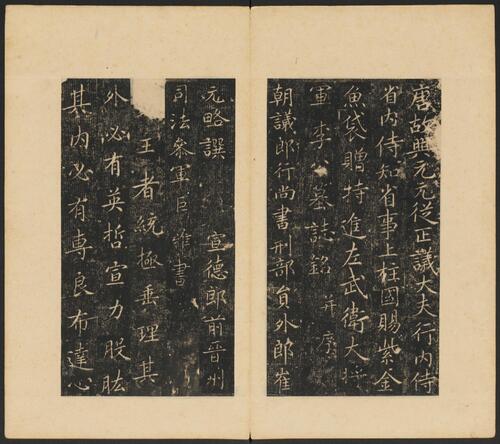 唐故興元元從正議大夫行內侍
省內侍知省事上柱國賜紫金
魚袋贈特進左武衛大將
軍李公墓誌銘 并序
朝議郎行尚書刑部員外郎崔
元略譔 宣德郎前晉州
司法參軍巨雅書
王者統極垂理其
外必有英哲宣力股肱
其內必有專良布達心